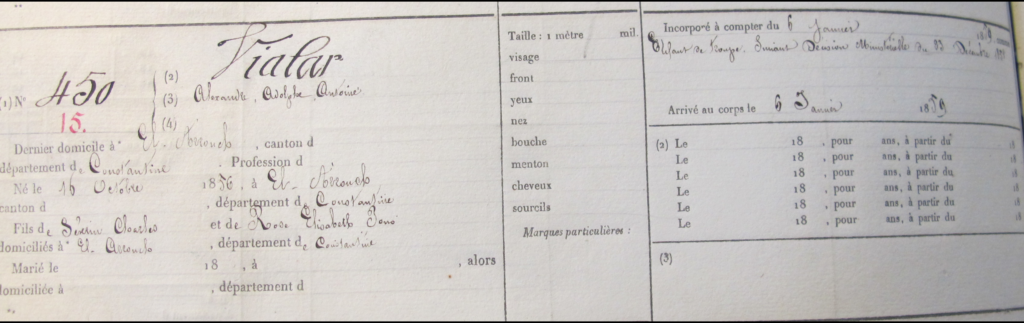 Vialar
(1) N° 450
15.
(2)
(3) Alexandre, Adolphe Antoine
(4)
Dernier domicile à El-Arrouch, canton d
département de Constantine. Profession d
Né le 16 Octobre 1856, à El-Arrouch
canton d , département de Constantine
Fils de Séverin Charles et de Rose Elisabeth
domiciliés à El Arrouch, département de Constantine
Marié le 18 , à , alors
domiciliée à , département d
Taille : 1 mètre mil.
visage
front
yeux
nez
bouche
menton
cheveux
sourcils
Marques particulières :
Incorporé à compter du 6 Janvier 18
Enfant de Troupe. Suivant Décision Ministérielle du Décembre
Arrivé au corps le 6 Janvier 1859
(2) Le 18 , pour ans, à partir du 18
Le 18 , pour ans, à partir du 18
Le 18 , pour ans, à partir du 18
Le 18 , pour ans, à partir du 18
Le 18 , pour ans, à partir du 18
Le 18 , pour ans, à partir du 18
(3)